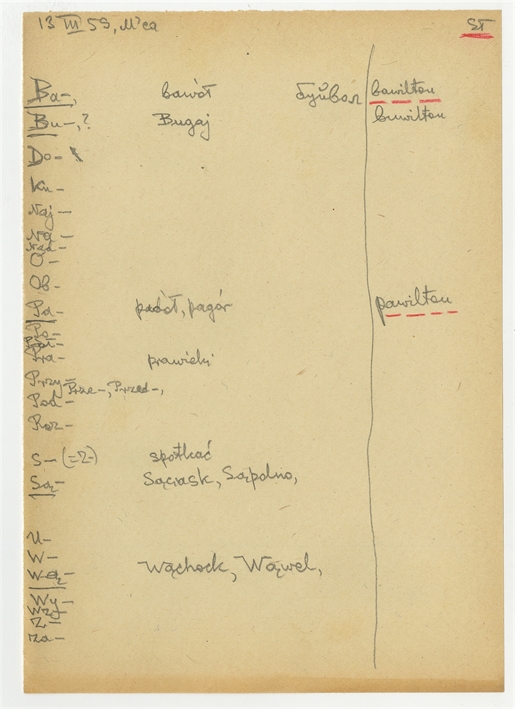 13 III 59, M'ca ST
Ba-, bawół буйвол bawilton
Bu-,? Bugaj buwilton
Do-
Ku-
Naj-
Na-
Nad-
O-
Ob-
Pa- padół, pagór pawilton
Po-
Pra- prawieki
Przy- Prze-, Przed-,
Pod-
Roz-
S- (=Z-) spotkać
Są- Sąciask, Sąpolno,
U-
W-
Wą- Wąchock, Wąwel,
Wy-
Wz-
Z-
Za-